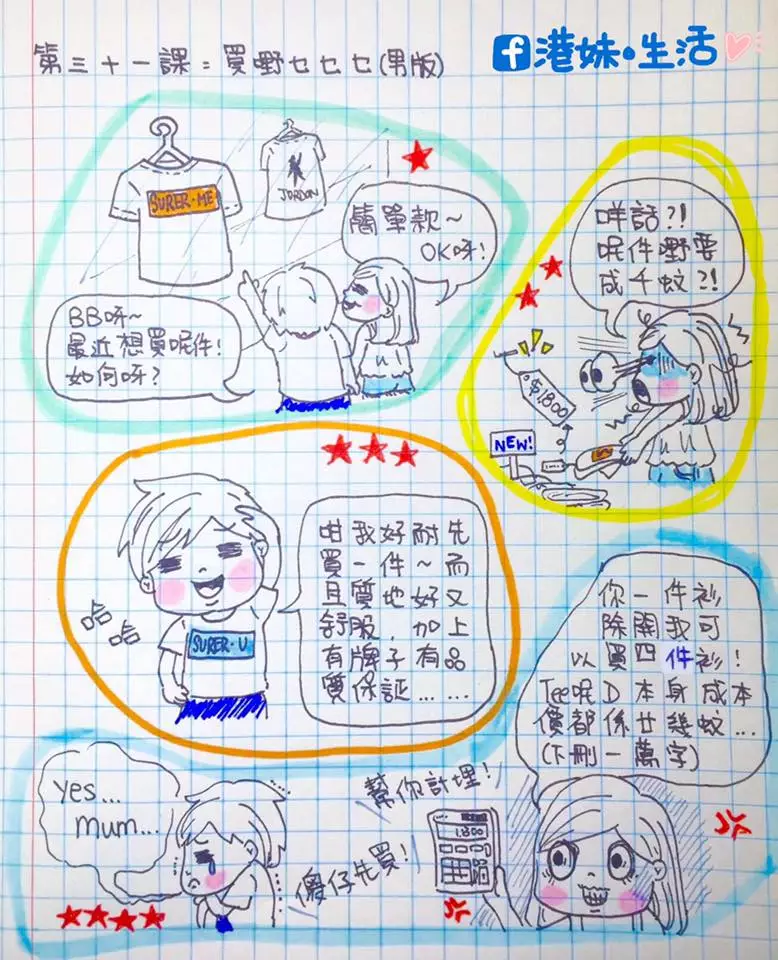 第三十一課:買嘢七七七(男版)
f 港妹・生活
SURER-ME
JORDON
簡單款~
OK呀!
BB呀~
最近想買呢件!
如何呀?
咩話?!
呢件嘢要
成千蚊?!
$1800
NEW!
咁我好耐先
買一件~而
且質地好又
舒服,加上
有牌子有品
質保証......
哈
哈
SURER-U
你一件衫
除開我可
以買四件衫!
Tee呢D本身成本
價都係廿幾蚊...
(下刪一萬字)
yes...
mum...
幫你計埋!
1,800
傻仔先買!